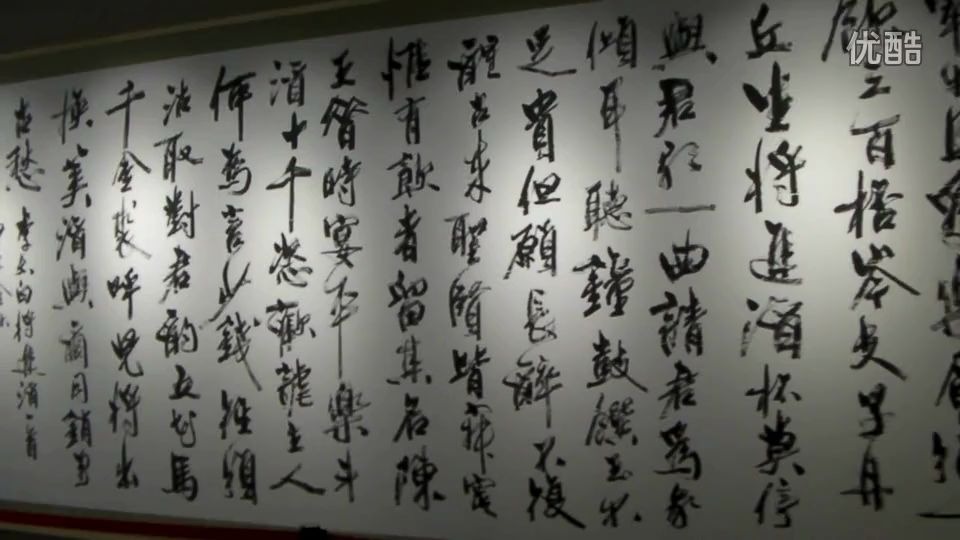 優酷
宰牛且為樂會須一
飲三百杯岑夫子丹
丘生將進酒杯莫停
與君歌一曲請君為我
傾耳聽鐘鼓饌玉不
足貴但願長醉不復
醒古來聖賢皆寂寞
惟有飲者留其名陳
王昔時宴平樂斗
酒十千恣歡謔主人
何為言少錢徑須
沽取對君酌五花馬
千金裘呼兒將出
換美酒與爾同銷萬
古愁 李太白將進酒一首